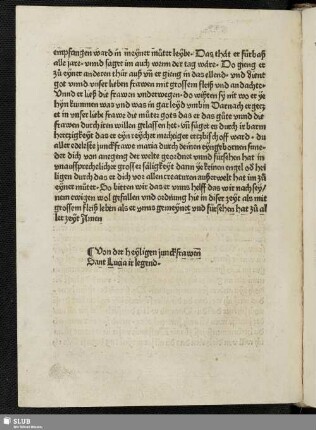 empfangen ward in meyner můter leybe. Das thät er fürbaß
alle jare. vnnd saget im auch wenn der tag wäre. Do gieng er
zu eyner anderen thür auß vñ er gieng in das ellend. vnd dienet
got vnnd vnser lieben frawen mit grossem fleiß vnd andachte.
Vnnd er ließ die frawen vnderwegen. do wißten sy nit wo er ye
hyn kummen was vnd was in gar leyd vmb in Darnach ergerzt
et in vnser liebe frawe die můter gots das er das gůte vnnd die
frawen durch iren willen gelassen het. vñ füget es durch ir barm
hertzigkeyt das er eyn reycher mächtiger ertzbischoff ward. du
aller edelste junckfrawe maria durch deinen eyngebornen sune
der dich von anegang der welte geordnet vnnd fürsehen hat in
vnaussprechlicher grosser säligkeyt dann ye keinen engel od heil
ligen durch das er dich vor allen creaturen außerwelt hat im zů
eyner můter. Do bitten wir das er vnns helff das wir nach sey
nem ewigen wolgefallen vnd ordnung hie in diser zeyt als mit
grossem fleiß leben als er vnns gemeynet vnd fürsehen hat zů al
ler zeyt Amen
Von der heyligen junckfrawen
Sant Lucia ir legend.
SLUB